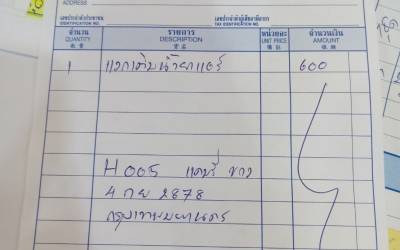 ADDRESS
เลขประจำตัวประชาชน เลขประจำตัวผู้เสียภาษีอากร
IDENTIFICATION NO. TAX IDENTIFICATION NO.
จำนวน รายการ หน่วยละ จำนวนเงิน
QUANTITY DESCRIPTION UNIT PRICE AMOUNT
1 600
H005 ขาว
4 กย 2878
กรุงเทพมหานคร